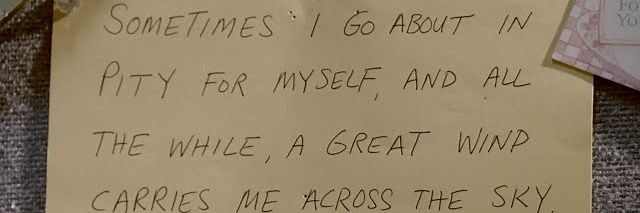 SOMETIMES I GO ABOUT IN
PITY FOR MYSELF, AND ALL
THE WHILE, A GREAT WIND
CARRIES ME ACROSS THE SKY.
FO
YO